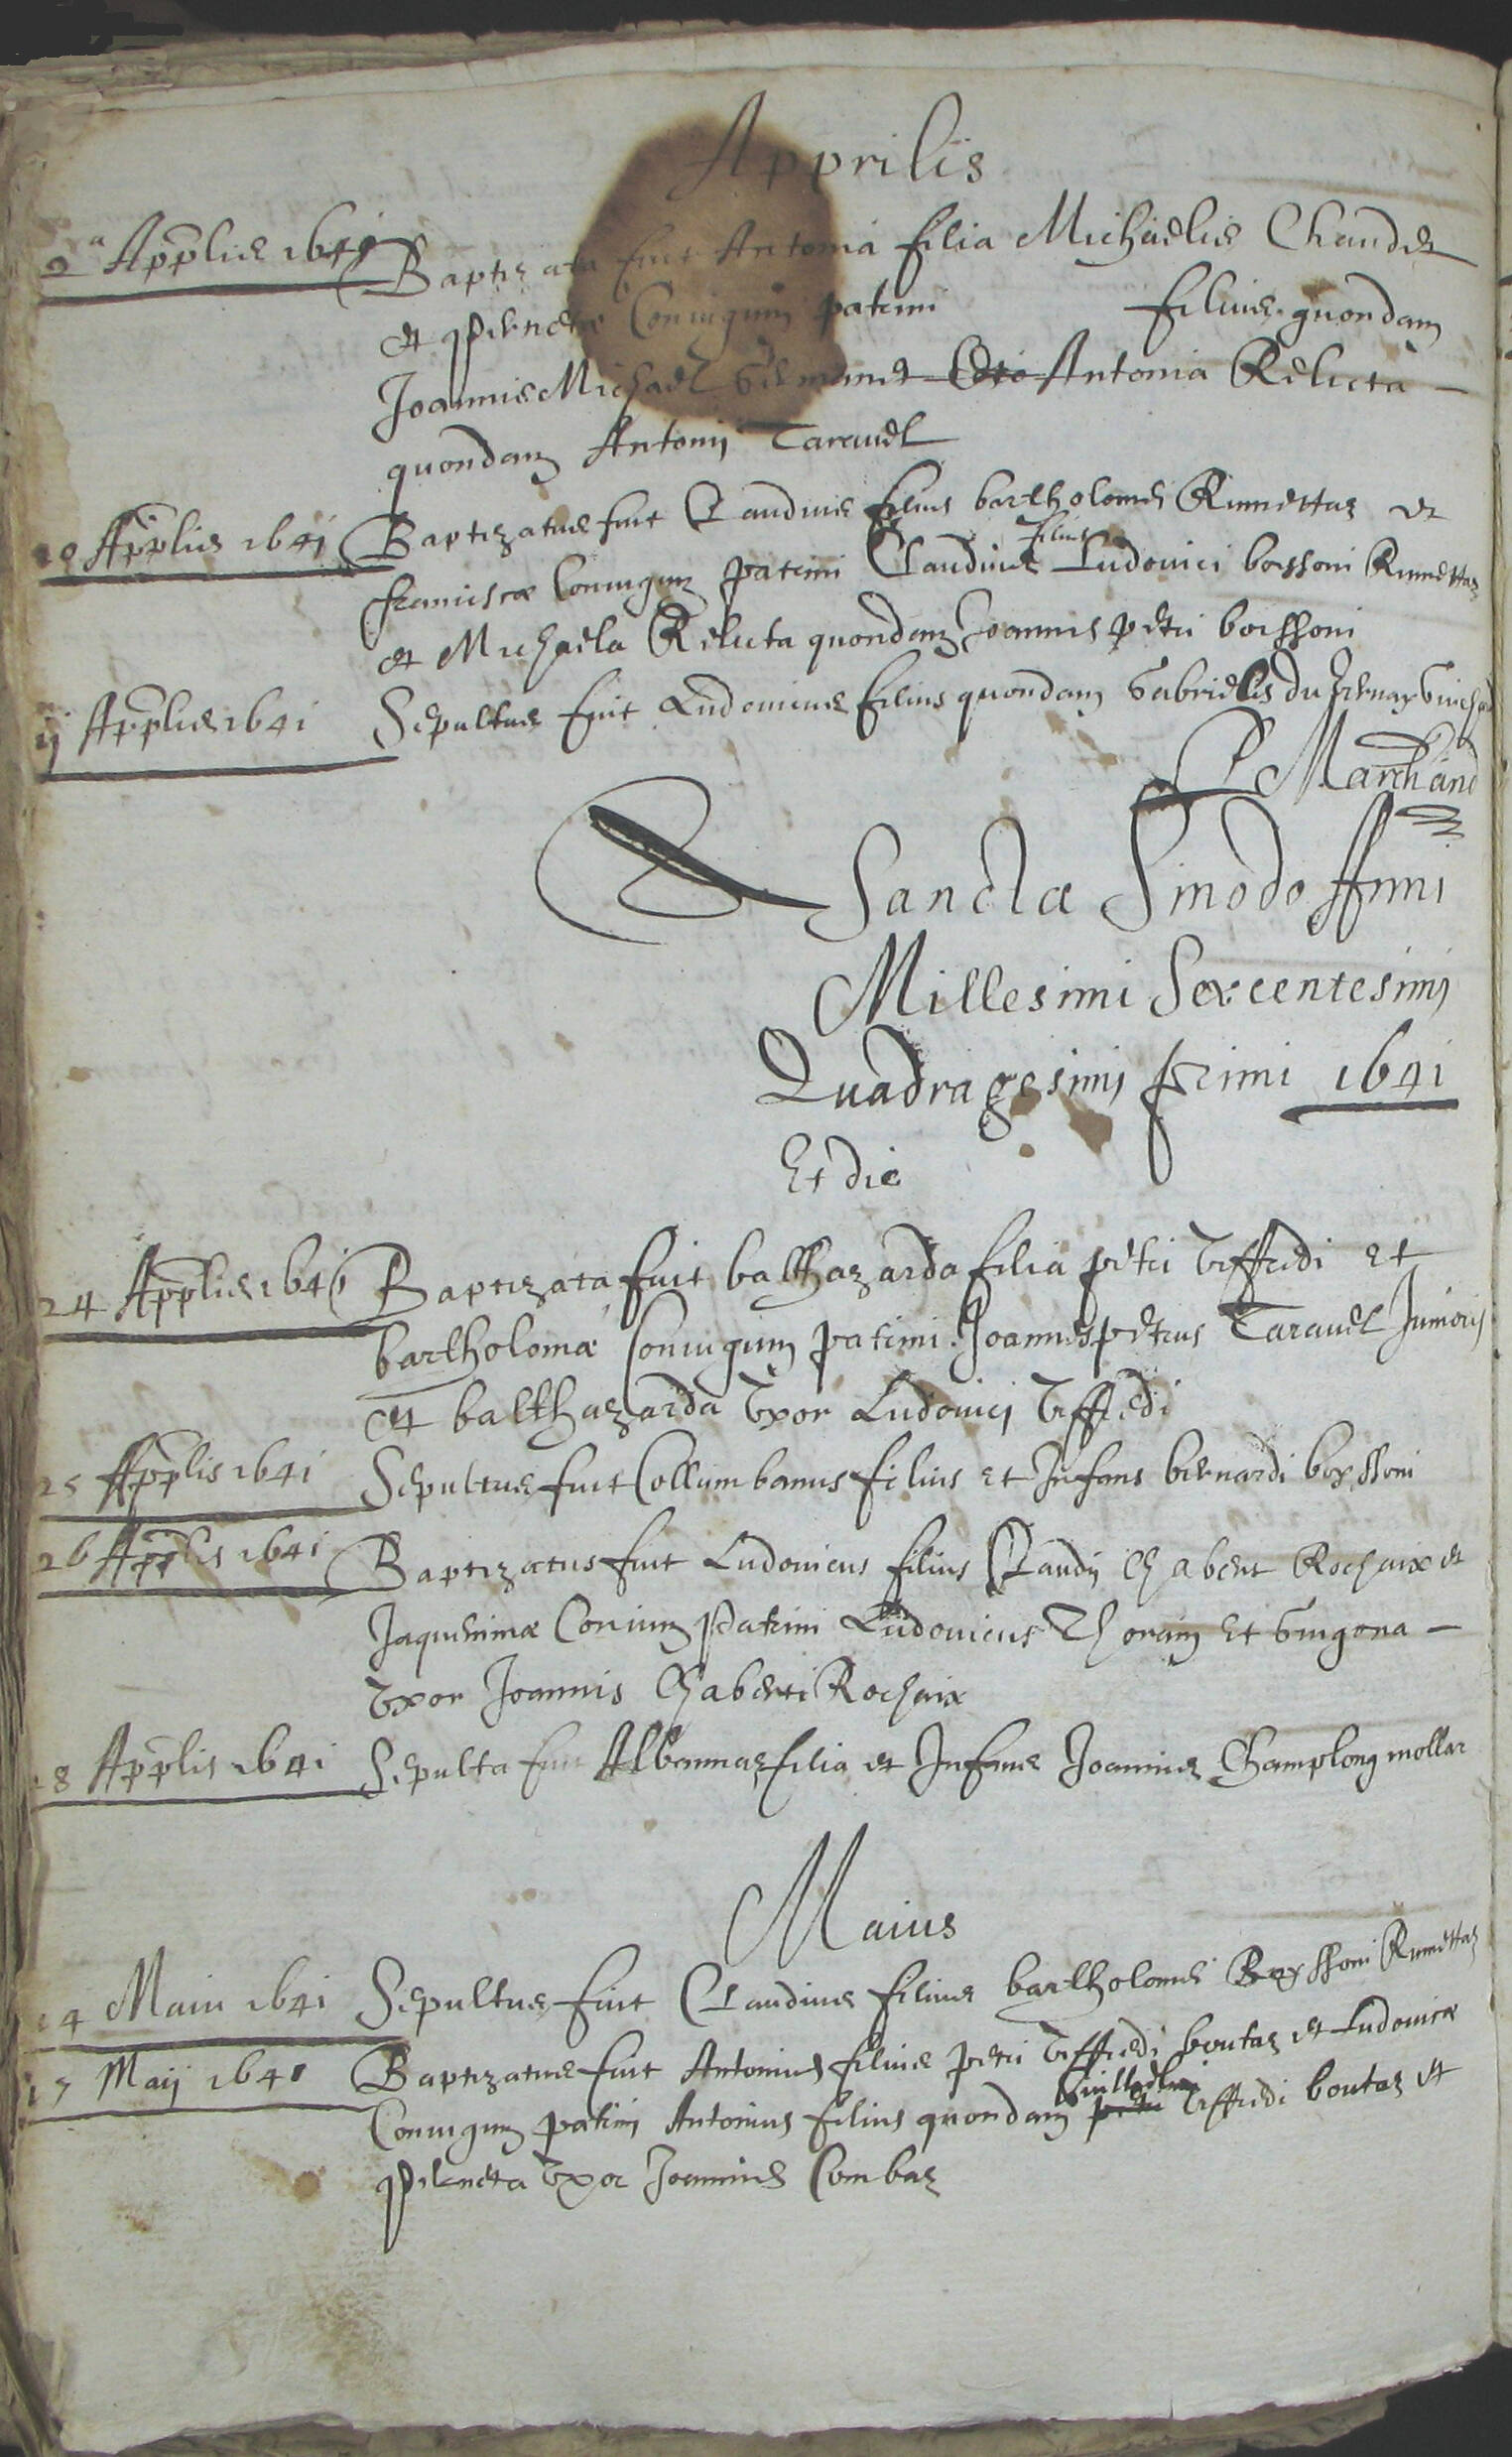 Apprilis
2a Applis 1641 Baptizata fuit Antonia filia Michaelis Chaudet
et pernetæ Coniugum patrini filius quondam
Joannis Michael et Antonia Relicta
quondam Antonij Taravel
10 Applis 1641 Baptizatus fuit Claudius filius bartholomei Rumettaz et
franciscæ Coniugum patrini Claudius filius Ludovici boissoni Rumettaz
et Michaela Relicta quondam Joannis petri boissoni
ij Applis 1641 Sepultus fuit Ludovicus filius quondam Gabrielis du
Marchand
Sancta Sinodo Anni
Millesimi Sexcentesimj
Quadragesimj primi 1641
Et die
24 Applis 1641 Baptizata fuit balthazarda filia petri Veffredi et
bartholomæ Coniugum patrini Joannes petrus Taravel Junioris
et balthazarda Vxor Ludovicj Veffredi
25 Applis 1641 Sepultus fuit Collumbanus filius et Infans bernardi boyssoni
26 Applis 1641 Baptizatus fuit Ludovicus filius Claudij Chabert Rochaix et
Jaqueminæ Conium patrini Ludovicus Thorain et Guigona
Vxor Joannis Chaberti Rochaix
28 Applis 1641 Sepulta fuit Albannaz filia et Infans Joannis Champlong mollar
Maius
14 Maiu 1641 Sepultus fuit Claudius filius bartholomei Boyssoni Rumettaz
17 Maij 1641 Baptizatus fuit Antonius filius petri Veffredi boutaz et Ludovicæ
Coniugum patrinj Antonius filius quondam petri Guillelmi Veffredi boutaz et
Perneta Vxor Joannis Combaz